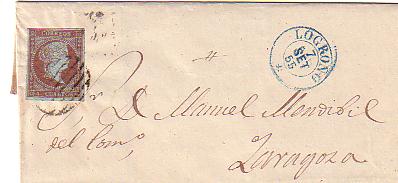 CORREOS
LOGROÑO
7
SET
55
D. Manuel Mandibil
del Comº
Zaragoza